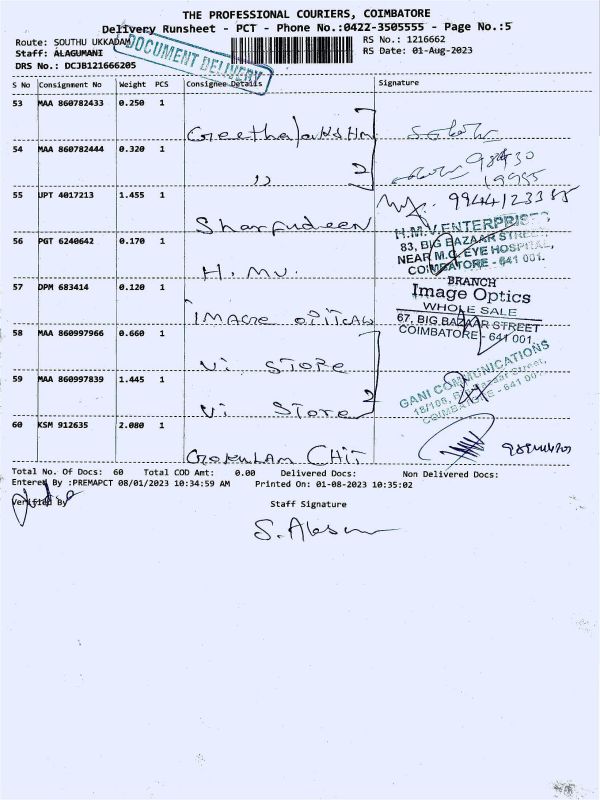 THE PROFESSIONAL COURIERS, COIMBATORE
Delivery Runsheet - PCT - Phone No.:0422-3505555 - Page No.:5
Route: SOUTHU UKKADAM
RS No.: 1216662
Staff: ALAGUMANI
RS Date: 01-Aug-2023
DRS No.: DCJB121666205
DOCUMENT DELIVERY
S No Consignment No Weight PCS Consignee Details Signature
53 MAA 860782433 0.250 1
Geethalakshmi
54 MAA 860782444 0.320 1
,, 2
19955
55 UPT 4017213 1.455 1
Sharfudeen
56 PGT 6240642 0.170 1
H.M.V ENTERPRISES
83, BIG BAZAAR STREET,
NEAR M.C. EYE HOSPITAL,
COIMBATORE - 641 001.
H. MV.
57 DPM 683414 0.120 1
BRANCH
Image Optics
WHOLE SALE
67, BIG BAZAAR STREET
COIMBATORE - 641 001
58 MAA 860997966 0.660 1
Vi STORE
59 MAA 860997839 1.445 1
2
GANI COMMUNICATIONS
Vi Store
60 KSM 912635 2.080 1
Gokulam CHIT
Total No. Of Docs: 60 Total COD Amt: 0.00 Delivered Docs: Non Delivered Docs:
Entered By :PREMAPCT 08/01/2023 10:34:59 AM Printed On: 01-08-2023 10:35:02
Verified By
Staff Signature